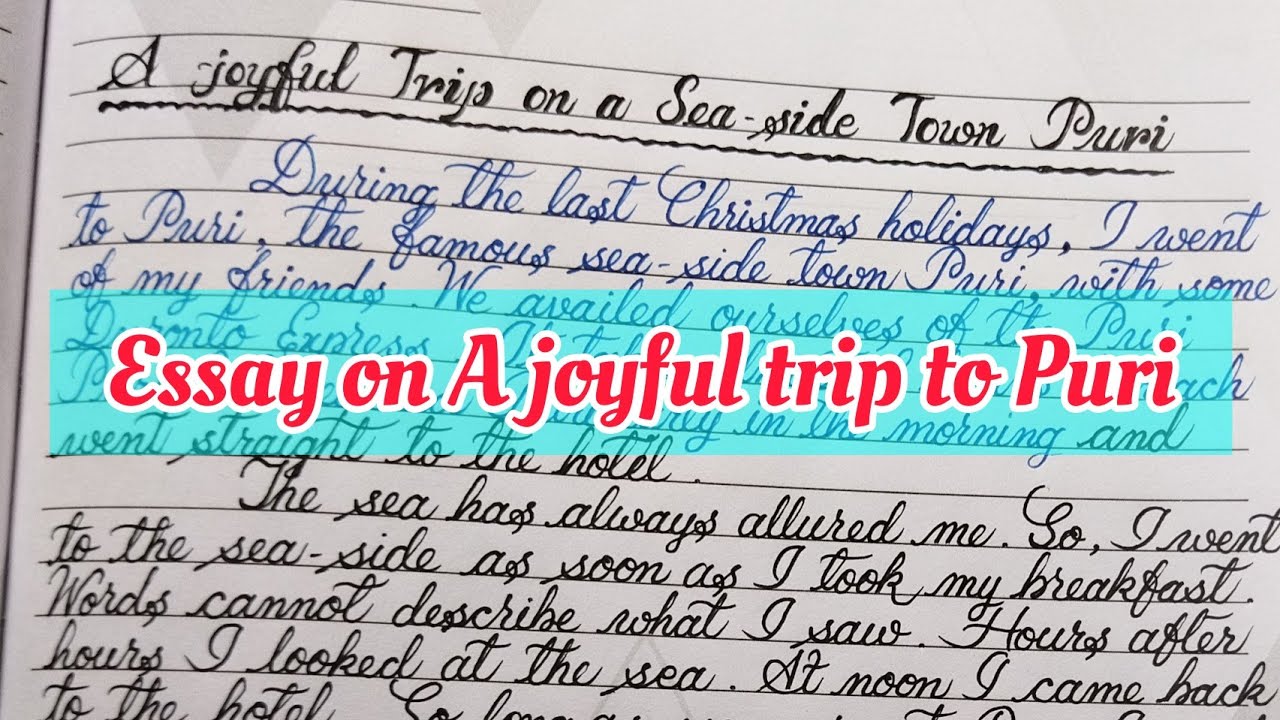 A joyful Trip on a Sea-side Town Puri
During the last Christmas holidays, I went
to Puri, the famous sea-side town Puri, with some
of my friends. We availed ourselves of the Puri
Duronto Express.
Essay on A joyful trip to Puri
in the morning and
went straight to the hotel.
The sea has always allured me. So, I went
to the sea-side as soon as I took my breakfast.
Words cannot describe what I saw. Hours after
hours I looked at the sea. At noon I came back
to the hotel. So long as